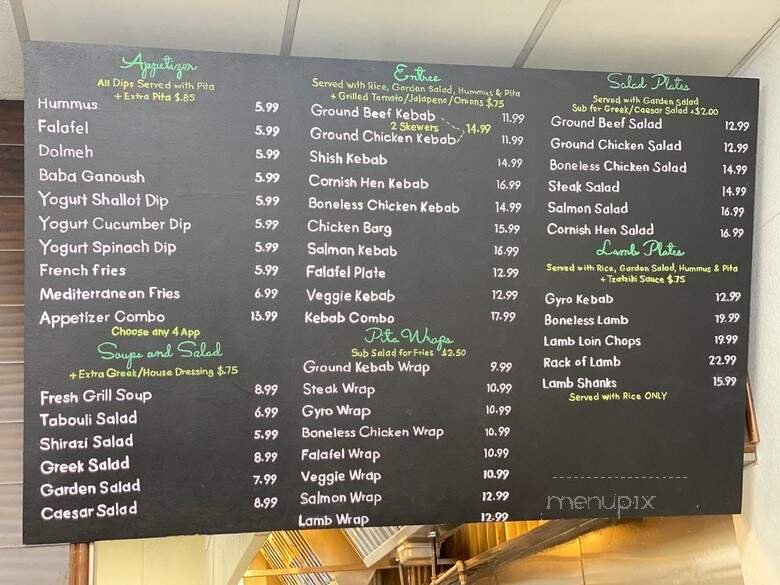 Appetizer
All Dips Served with Pita
+ Extra Pita $.85
Hummus 5.99
Falafel 5.99
Dolmeh 5.99
Baba Ganoush 5.99
Yogurt Shallot Dip 5.99
Yogurt Cucumber Dip 5.99
Yogurt Spinach Dip 5.99
French fries 5.99
Mediterranean Fries 6.99
Appetizer Combo 15.99
Choose any 4 App
Soups and Salad
+ Extra Greek/House Dressing $.75
Fresh Grill Soup 8.99
Tabouli Salad 6.99
Shirazi Salad 5.99
Greek Salad 8.99
Garden Salad 7.99
Caesar Salad 8.99
Entree
Served with Rice, Garden Salad, Hummus & Pita
+ Grilled Tomato/Jalapeno/Onions $.75
Ground Beef Kebab 11.99
2 Skewers 14.99
Ground Chicken Kebab 11.99
Shish Kebab 14.99
Cornish Hen Kebab 16.99
Boneless Chicken Kebab 14.99
Chicken Barg 15.99
Salman Kebab 16.99
Falafel Plate 12.99
Veggie Kebab 12.99
Kebab Combo 17.99
Pita Wraps
Sub Salad for Fries $2.50
Ground Kebab Wrap 9.99
Steak Wrap 10.99
Gyro Wrap 10.99
Boneless Chicken Wrap 10.99
Falafel Wrap 10.99
Veggie Wrap 10.99
Salmon Wrap 12.99
Lamb Wrap 12.99
Salad Plates
Served with Garden Salad
Sub for Greek/Caesar Salad +$2.00
Ground Beef Salad 12.99
Ground Chicken Salad 12.99
Boneless Chicken Salad 14.99
Steak Salad 14.99
Salmon Salad 16.99
Cornish Hen Salad 16.99
Lamb Plates
Served with Rice, Garden Salad, Hummus & Pita
+ Tzatziki Sauce $.75
Gyro Kebab 12.99
Boneless Lamb 19.99
Lamb Loin Chops 19.99
Rack of Lamb 22.99
Lamb Shanks 15.99
Served with Rice ONLY
menupix